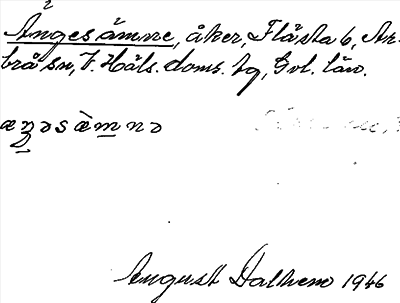 Ängesämne, åker, Flästa 6, Ar-
brå sn, V. Häls. doms. tg, Gvl. län.
æŋəsæ̀mnə
August Dalhem 1946